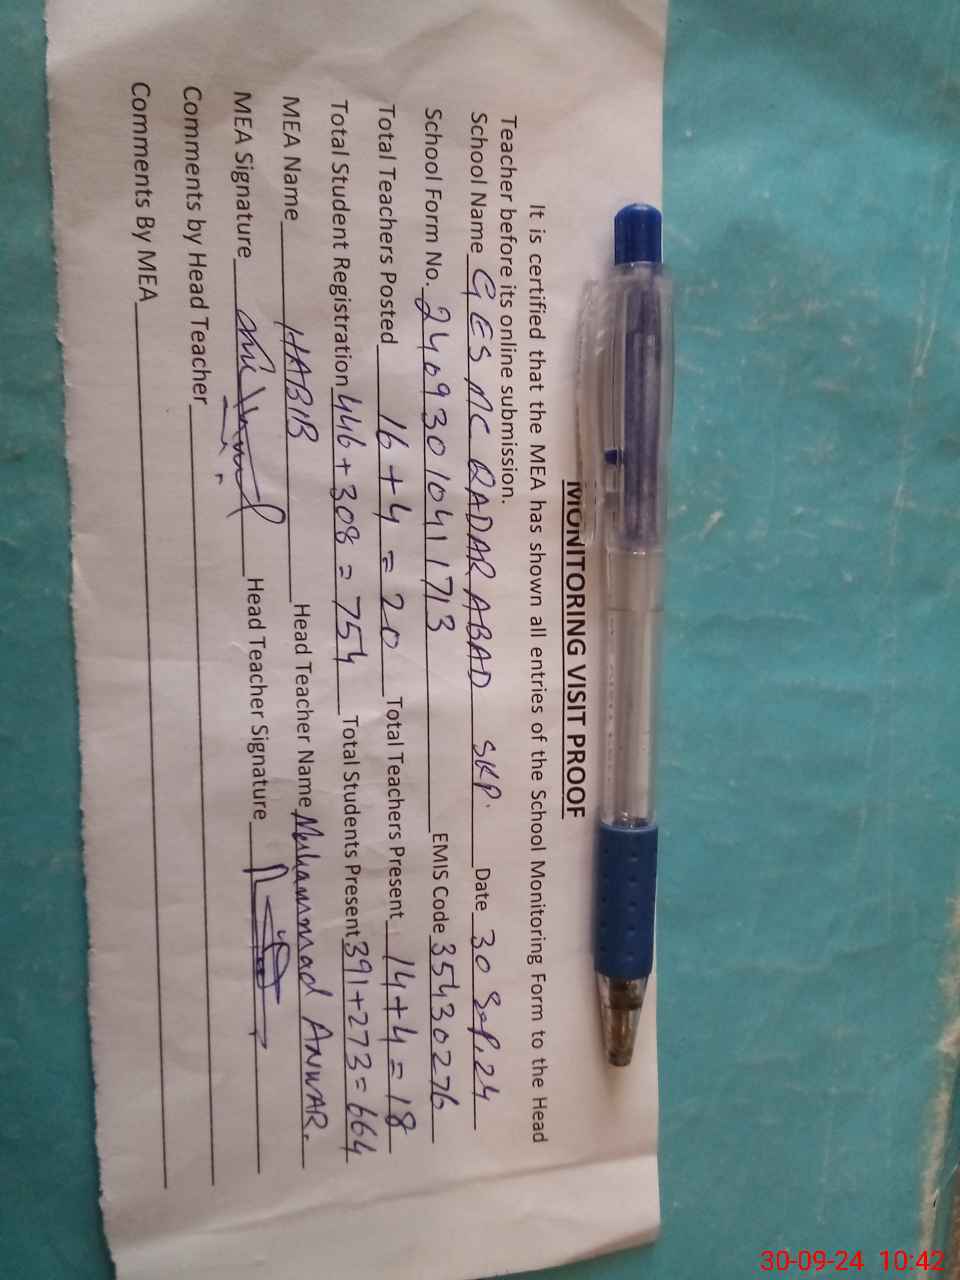 MONITORING VISIT PROOF
It is certified that the MEA has shown all entries of the School Monitoring Form to the Head
Teacher before its online submission.
School Name GES MC QADAR ABAD SKP. Date 30 Sep, 24
School Form No. 2409301041713 EMIS Code 35430276
Total Teachers Posted 16 + 4 = 20 Total Teachers Present 14+4 = 18
Total Student Registration 446 + 308 = 754 Total Students Present 391+273=664
MEA Name HABIB Head Teacher Name Muhammad ANWAR.
MEA Signature Head Teacher Signature
Comments by Head Teacher
Comments By MEA
30-09-24 10:42